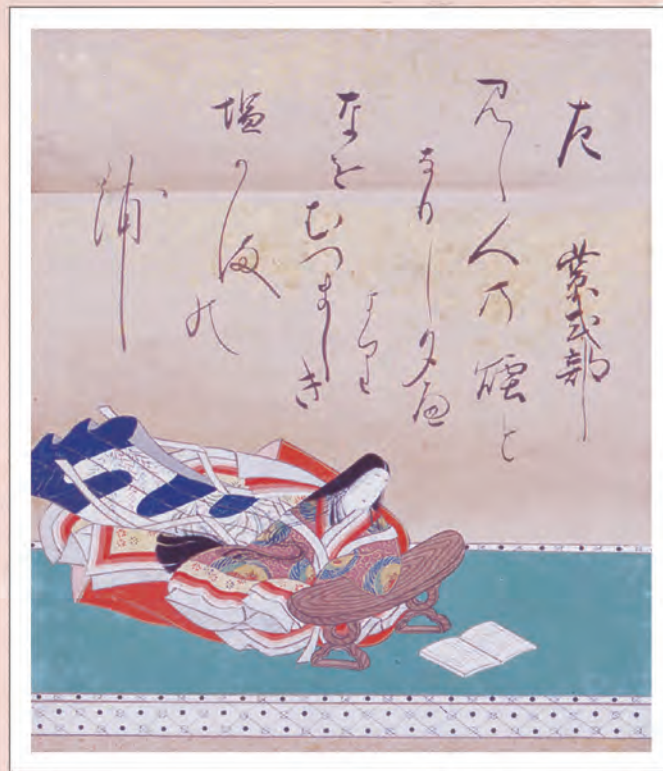 左 紫式部
見し人の煙と
なりし夕へ
より
なをむつましき
塩かまの
浦